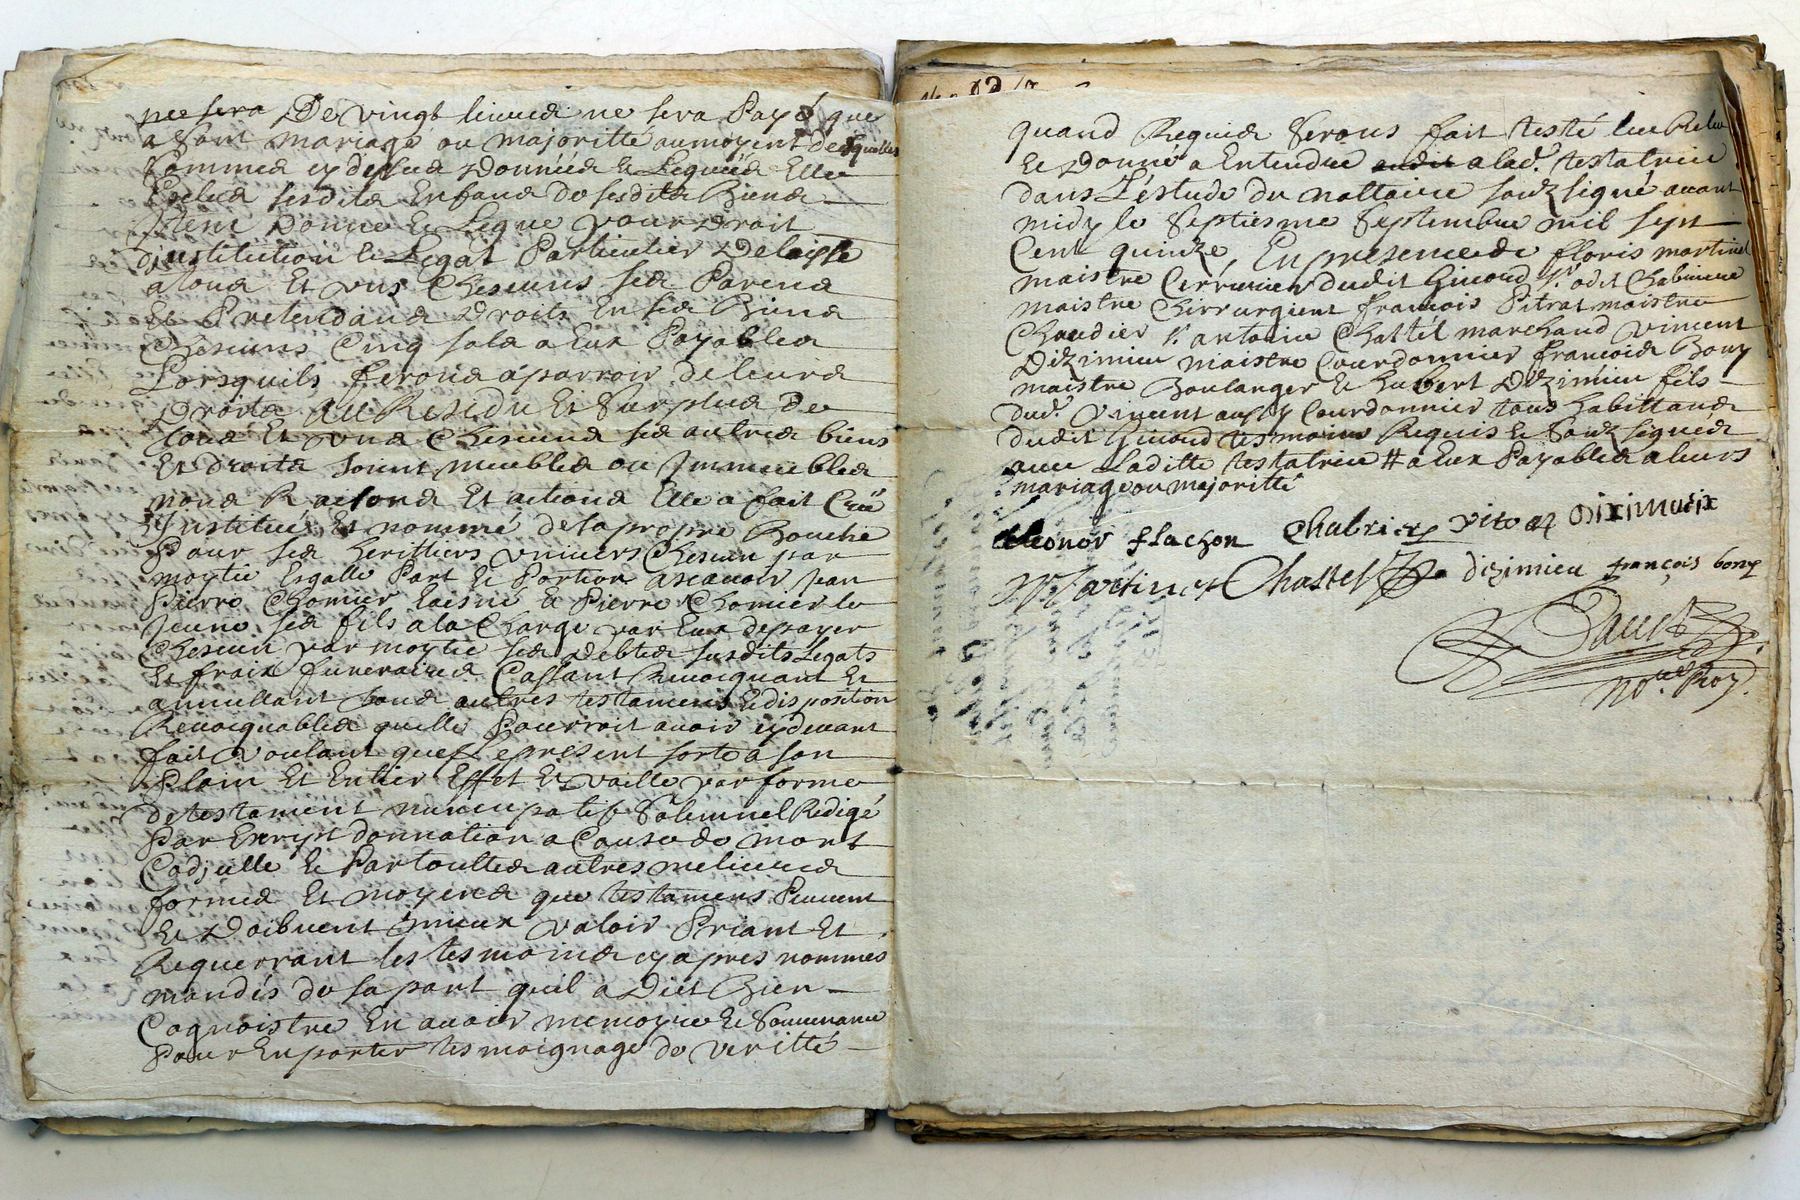 nee sera De vingt livres ne sera Payé que
a sont mariage ou majoritté au moyent desquelles
Sommes cy dessus Données et Leguées Elle
Exclud sesdits Enfans de sesdits Biens
Item Donne et Legue pour Droit
dinstitution et Legat Particulier Delaisse
a tous Et uns Chescuns ses Parens
Et Pretendans Droits En ses Biens
Chescuns Cinq sols a Eux Payables
Lorsquils ferons aparroir de leurs
Droits au Residu Et Surplus De
tous Et uns Chescuns ses autres biens
Et droits soint meubles ou Immeubles
noms Raisons Et actions Elle a fait Créé
Institué Et nommé de sa propre Bouche
Pour ses herittiers univers Chescun par
moytié Esgalle Part Et Portion ascavoir Jean
Pierre Chomier laisné Et Pierre Chomier le
Jeune ses fils a la Charge par Eux de payer
Chescun par moytié ses Debtes susdits Legats
Et fraix funeraires Cassant Revocquant Et
annullant tous autres testamens Et disposition
Revocquables quelle Pourroit avoir cy devant
fait Voulant que Le present sorte a son
Plain Et Entier Effet Et vaille par forme
de testament nuncupatif Solemnel Redigé
Par Escript donnation a Cause de mort
Codjcille Et Par touttes autres melieures
formes Et moyens que testamens Peuvent
Et Doibvent mieux Valoir Priant Et
Requerrant les tesmoins cy apres nommés
mandés de sa part quil a Dict Bien
Cognoistre En avoir memoyre Et Souvenance
Pour En porter tesmoignage de veritté
quand Requis Serons fait testé leu Releu
Et Donné a Entendre a lad.e testatrice
dans L'estude du nottaire soubzsigné avant
midy le Septiesme Septembre mil sept
Cent quinze, En presence de floris martinet
maistre Cerrurier dudit Givord Sr odet Chabrierie
maistre Chirrurgient francois Pitrat maistre
Chaudier Sr antoine Chastel marchand Vincent
Dizimieu maistre Courdonnier francois Bony
maistre Boulanger Et hubert Dizimieu fils
dud.t Vincent aussy Courdonnier tous habittans
dudit Givord tesmoins Requis Et Soubzsignés
avec Laditte testatrice # a Eux Payables a leurs
mariage ou majoritté
eleonor flachon Chabriery pitrat diximieix
Martinet Chastel dizimieu françois bony
not.re Roy.